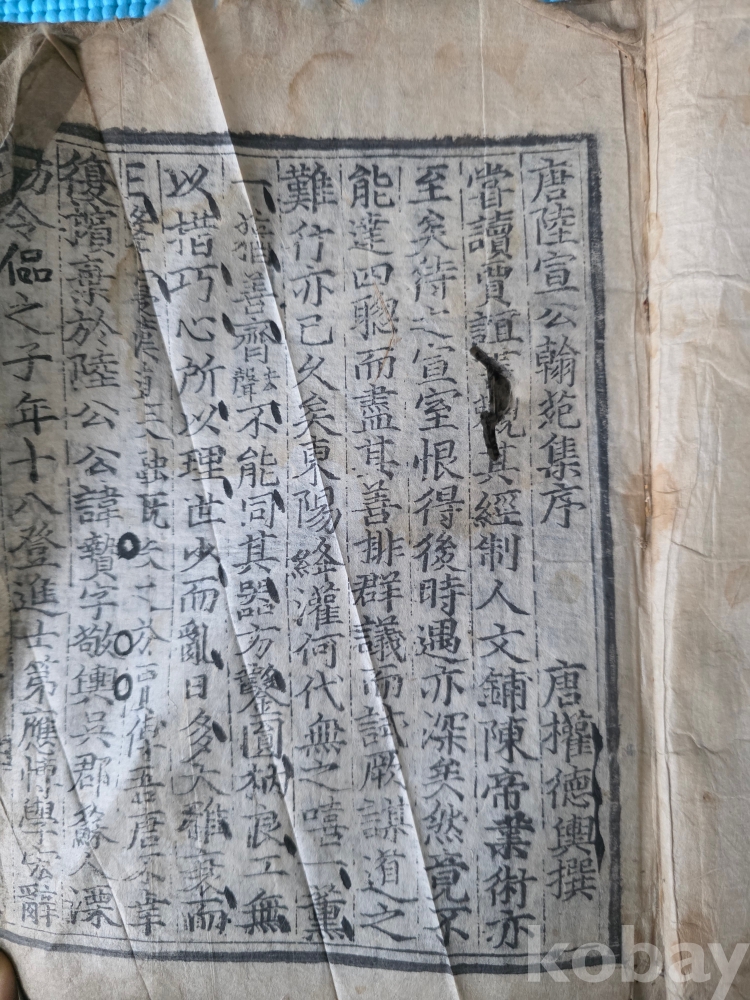 唐陸宣公翰苑集序 唐權德輿撰
嘗讀賈誼觀其經制人文鋪陳帝業術亦
至矣待之宣室恨得後時遇亦深矣然竟不
能達四聰而盡其善排群議而試厥謀道之
難行亦已久矣東陽絳灌何代無之嘻一薰
一蕕善齊去聲不能同其器方鑿圓枘良工無
以措巧心所以理世少而亂日多大雅衰而
未融既失之於賈傅吾唐不幸
復擯棄於陸公公諱贄字敬輿吳郡蘇人溧
令偘之子年十八登進士第應博學宏辭
kobay